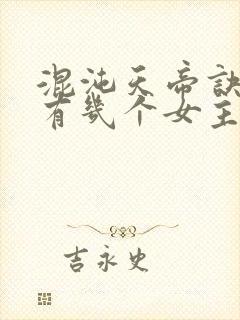 混沌天帝訣
有幾个女主
吉永史